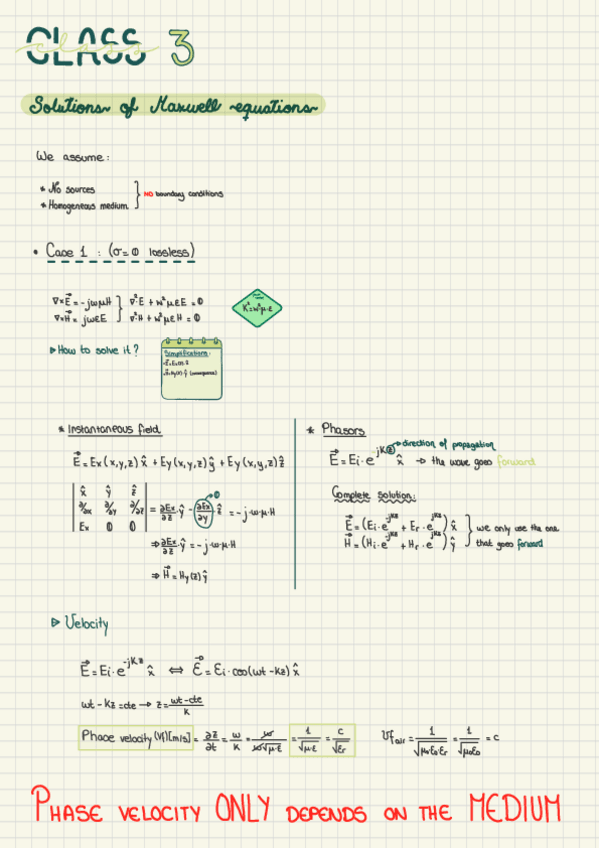 CLASS 3
class
Solutions of Maxwell equations
We assume:
* No sources
* Homogeneous medium
} NO boundary conditions
• Case 1 : (σ=0 lossless)
∇×E⃗ = -jωμH } ∇²·E + ω²μεE = 0
∇×H⃗ = jωεE } ∇²·H + ω²μεH = 0
K²=ω²·μ·ε
▷ How to solve it?
Simplifications:
* Instantaneous field
E⃗ = Ex(x,y,z) x̂ + Ey(x,y,z) ŷ + Ey(x,y,z) ẑ
| x̂ ŷ ẑ |
| ∂/∂x ∂/∂y ∂/∂z | = ∂Ex/∂z · ŷ - ∂Ex/∂y · ẑ = -j·ω·μ·H
| Ex 0 0 |
→0
⇒ ∂Ex/∂z · ŷ = -j·ω·μ·H
⇒ H⃗ = Hy(z) ŷ
* Phasors
→ direction of propagation
E⃗ = Ei·e^jKz x̂ → the wave goes forward
Complete solution:
E⃗ = (Ei·e^jKz + Er·e^jKz) x̂ } we only use the one
H⃗ = (Hi·e^jKz + Hr·e^jKz) ŷ } that goes forward
▷ Velocity
E⃗ = Ei·e^-jKz x̂ ⟺ ℰ⃗ = Ei·cos(ωt-kz) x̂
ωt - Kz = cte → z = ωt-cte/k
Phase velocity (Vf)[m/s] = ∂z/∂t = ω/K = ω/ω√μ·ε = 1/√μ·ε = c/√εr
Vf air = 1/√μ₀·ε₀·εr = 1/√μ₀ε₀ = c
PHASE VELOCITY ONLY DEPENDS ON THE MEDIUM